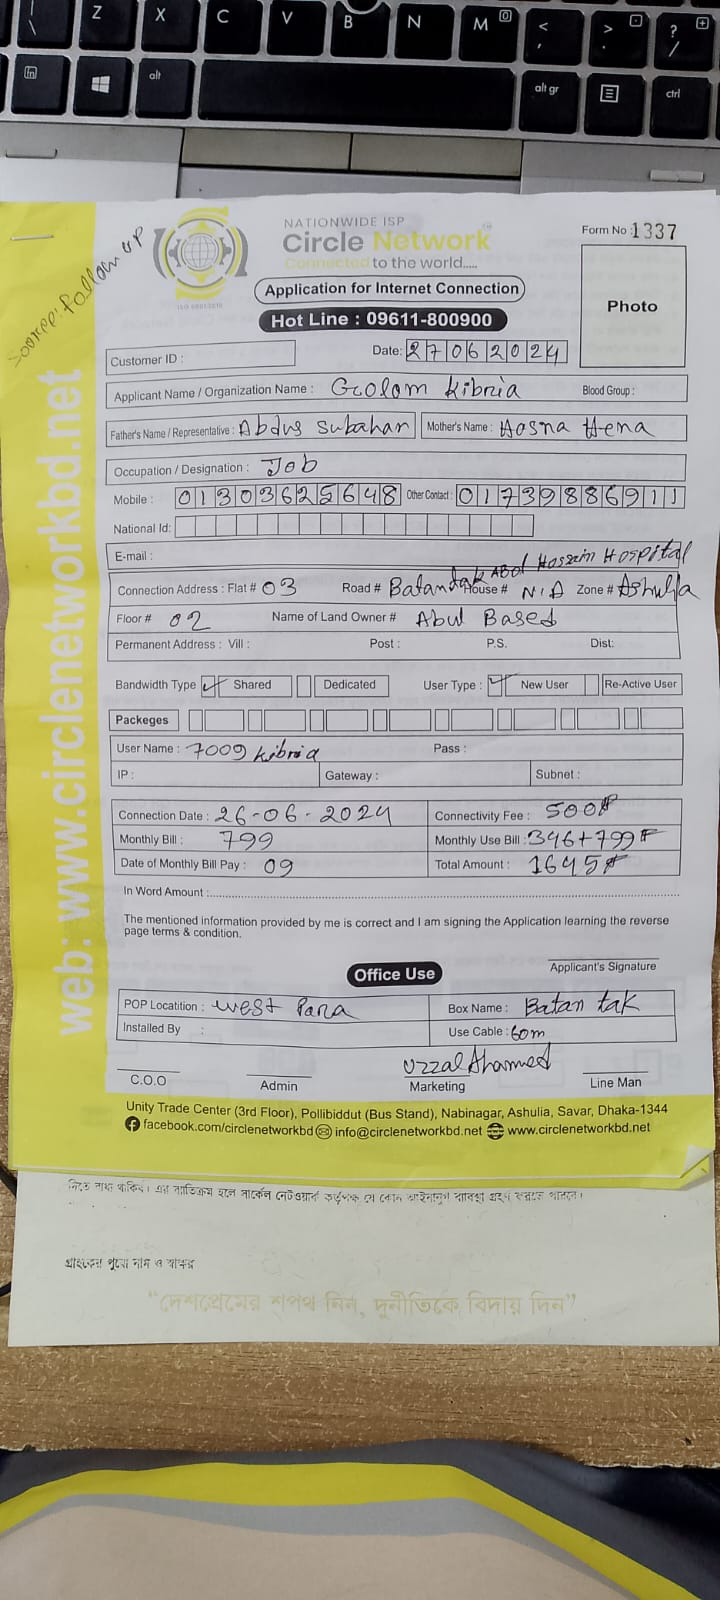 Z X C V B N M < > ?
, . /
fn alt alt gr ctrl
Source: Follow up
NATIONWIDE ISP
Circle Network
Connected to the world.....
ISO 9001:2015
Form No : 1337
Application for Internet Connection
Hot Line : 09611-800900
Photo
Customer ID :
Date: 27062024
Applicant Name / Organization Name : Golam Kibria Blood Group :
Father's Name / Representative : Abdus Subahan Mother's Name : Hosna Hena
Occupation / Designation : Job
Mobile : 01303625648 Other Contact : 01739886911
National Id:
E-mail :
Abol Hossain Hospital
Connection Address : Flat # 03 Road # Batantak House # N/A Zone # Ashulia
Floor # 02 Name of Land Owner # Abul Based
Permanent Address : Vill : Post : P.S. Dist:
Bandwidth Type Shared Dedicated User Type : New User Re-Active User
Packeges
User Name : 7009 kibria Pass :
IP : Gateway : Subnet :
Connection Date : 26-06-2024 Connectivity Fee : 500
Monthly Bill : 799 Monthly Use Bill : 346+799
Date of Monthly Bill Pay : 09 Total Amount : 1645
In Word Amount :
The mentioned information provided by me is correct and I am signing the Application learning the reverse
page terms & condition.
Applicant's Signature
Office Use
POP Locatition : West Para Box Name : Batan tak
Installed By : Use Cable : 60m
Uzzal Ahamed
C.O.O Admin Marketing Line Man
Unity Trade Center (3rd Floor), Pollibiddut (Bus Stand), Nabinagar, Ashulia, Savar, Dhaka-1344
facebook.com/circlenetworkbd info@circlenetworkbd.net www.circlenetworkbd.net
web: www.circlenetworkbd.net
দিতে বাধ্য থাকিব। এর ব্যতিক্রম হলে সার্কেল নেটওয়ার্ক কর্তৃপক্ষ যে কোন আইনানুগ ব্যবস্থা গ্রহণ করতে পারবে।
গ্রাহকের পুরো নাম ও স্বাক্ষর
“দেশপ্রেমের শপথ নিন, দুর্নীতিকে বিদায় দিন”